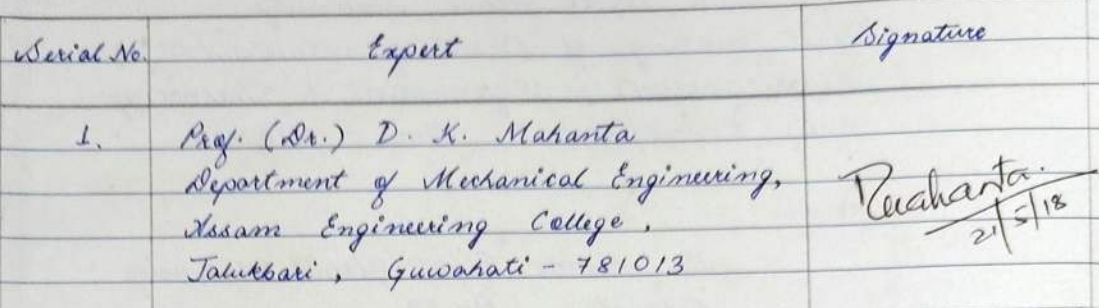 Serial No. Expert Signature
1. Prof. (Dr.) D. K. Mahanta
Department of Mechanical Engineering,
Assam Engineering College,
Jalukbari, Guwahati - 781013
Dmahanta.
21/5/18